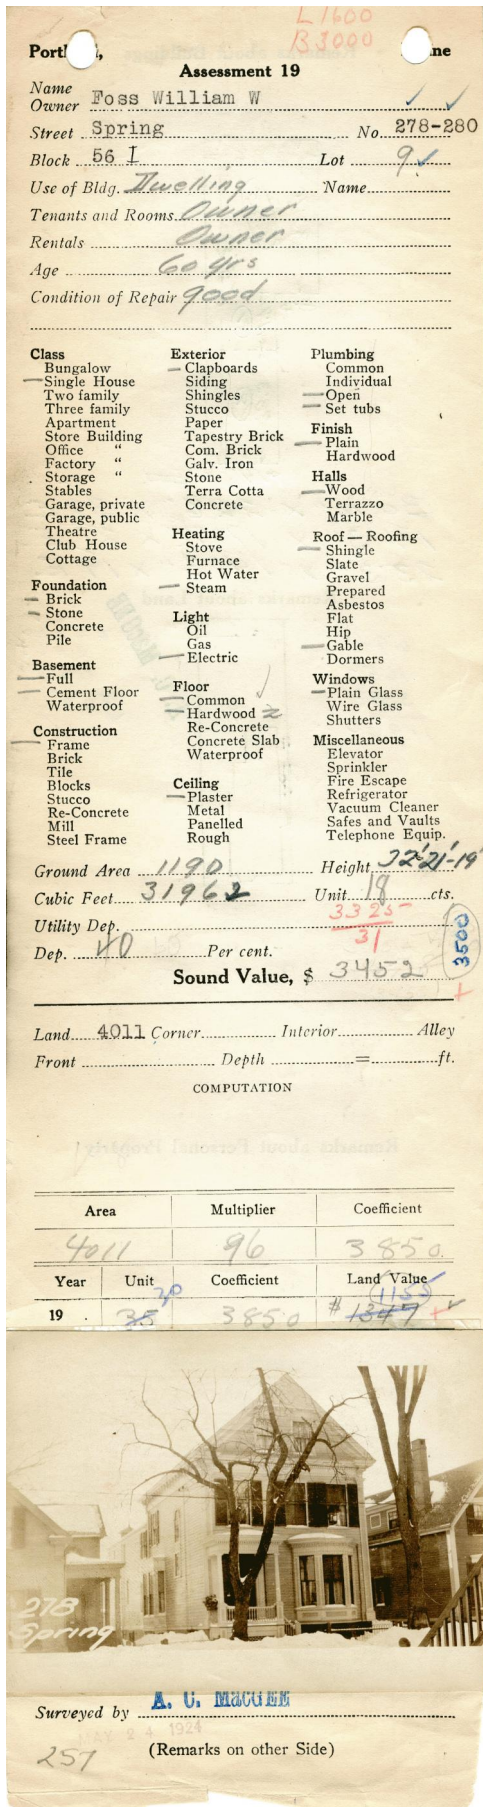 L 1600
B 3000
Portl d, ne
Assessment 19
Name
Owner Foss William W
Street Spring No. 278-280
Block 56 I Lot 9
Use of Bldg. Dwelling Name
Tenants and Rooms Owner
Rentals Owner
Age 60 yrs
Condition of Repair good
Class
Bungalow
Single House
Two family
Three family
Apartment
Store Building
Office "
Factory "
Storage "
Stables
Garage, private
Garage, public
Theatre
Club House
Cottage
Foundation
Brick
Stone
Concrete
Pile
Basement
Full
Cement Floor
Waterproof
Construction
Frame
Brick
Tile
Blocks
Stucco
Re-Concrete
Mill
Steel Frame
Exterior
Clapboards
Siding
Shingles
Stucco
Paper
Tapestry Brick
Com. Brick
Galv. Iron
Stone
Terra Cotta
Concrete
Heating
Stove
Furnace
Hot Water
Steam
Light
Oil
Gas
Electric
Floor
Common
Hardwood 2
Re-Concrete
Concrete Slab
Waterproof
Ceiling
Plaster
Metal
Panelled
Rough
Plumbing
Common
Individual
Open
Set tubs
Finish
Plain
Hardwood
Halls
Wood
Terrazzo
Marble
Roof — Roofing
Shingle
Slate
Gravel
Prepared
Asbestos
Flat
Hip
Gable
Dormers
Windows
Plain Glass
Wire Glass
Shutters
Miscellaneous
Elevator
Sprinkler
Fire Escape
Refrigerator
Vacuum Cleaner
Safes and Vaults
Telephone Equip.
Ground Area 1190 Height 32'-21'-19'
Cubic Feet 31962 Unit 18 cts.
Utility Dep. 3325
31
3500
Dep. 40 Per cent.
Sound Value, $ 3452
Land 4011 Corner Interior Alley
Front Depth = ft.
COMPUTATION
Area Multiplier Coefficient
4011 96 3850.
Year Unit Coefficient Land Value
30 1155
19 . 35 3850 # 1347
278
Spring
Surveyed by A. C. MacGEE
MAY 24 1924
257 (Remarks on other Side)